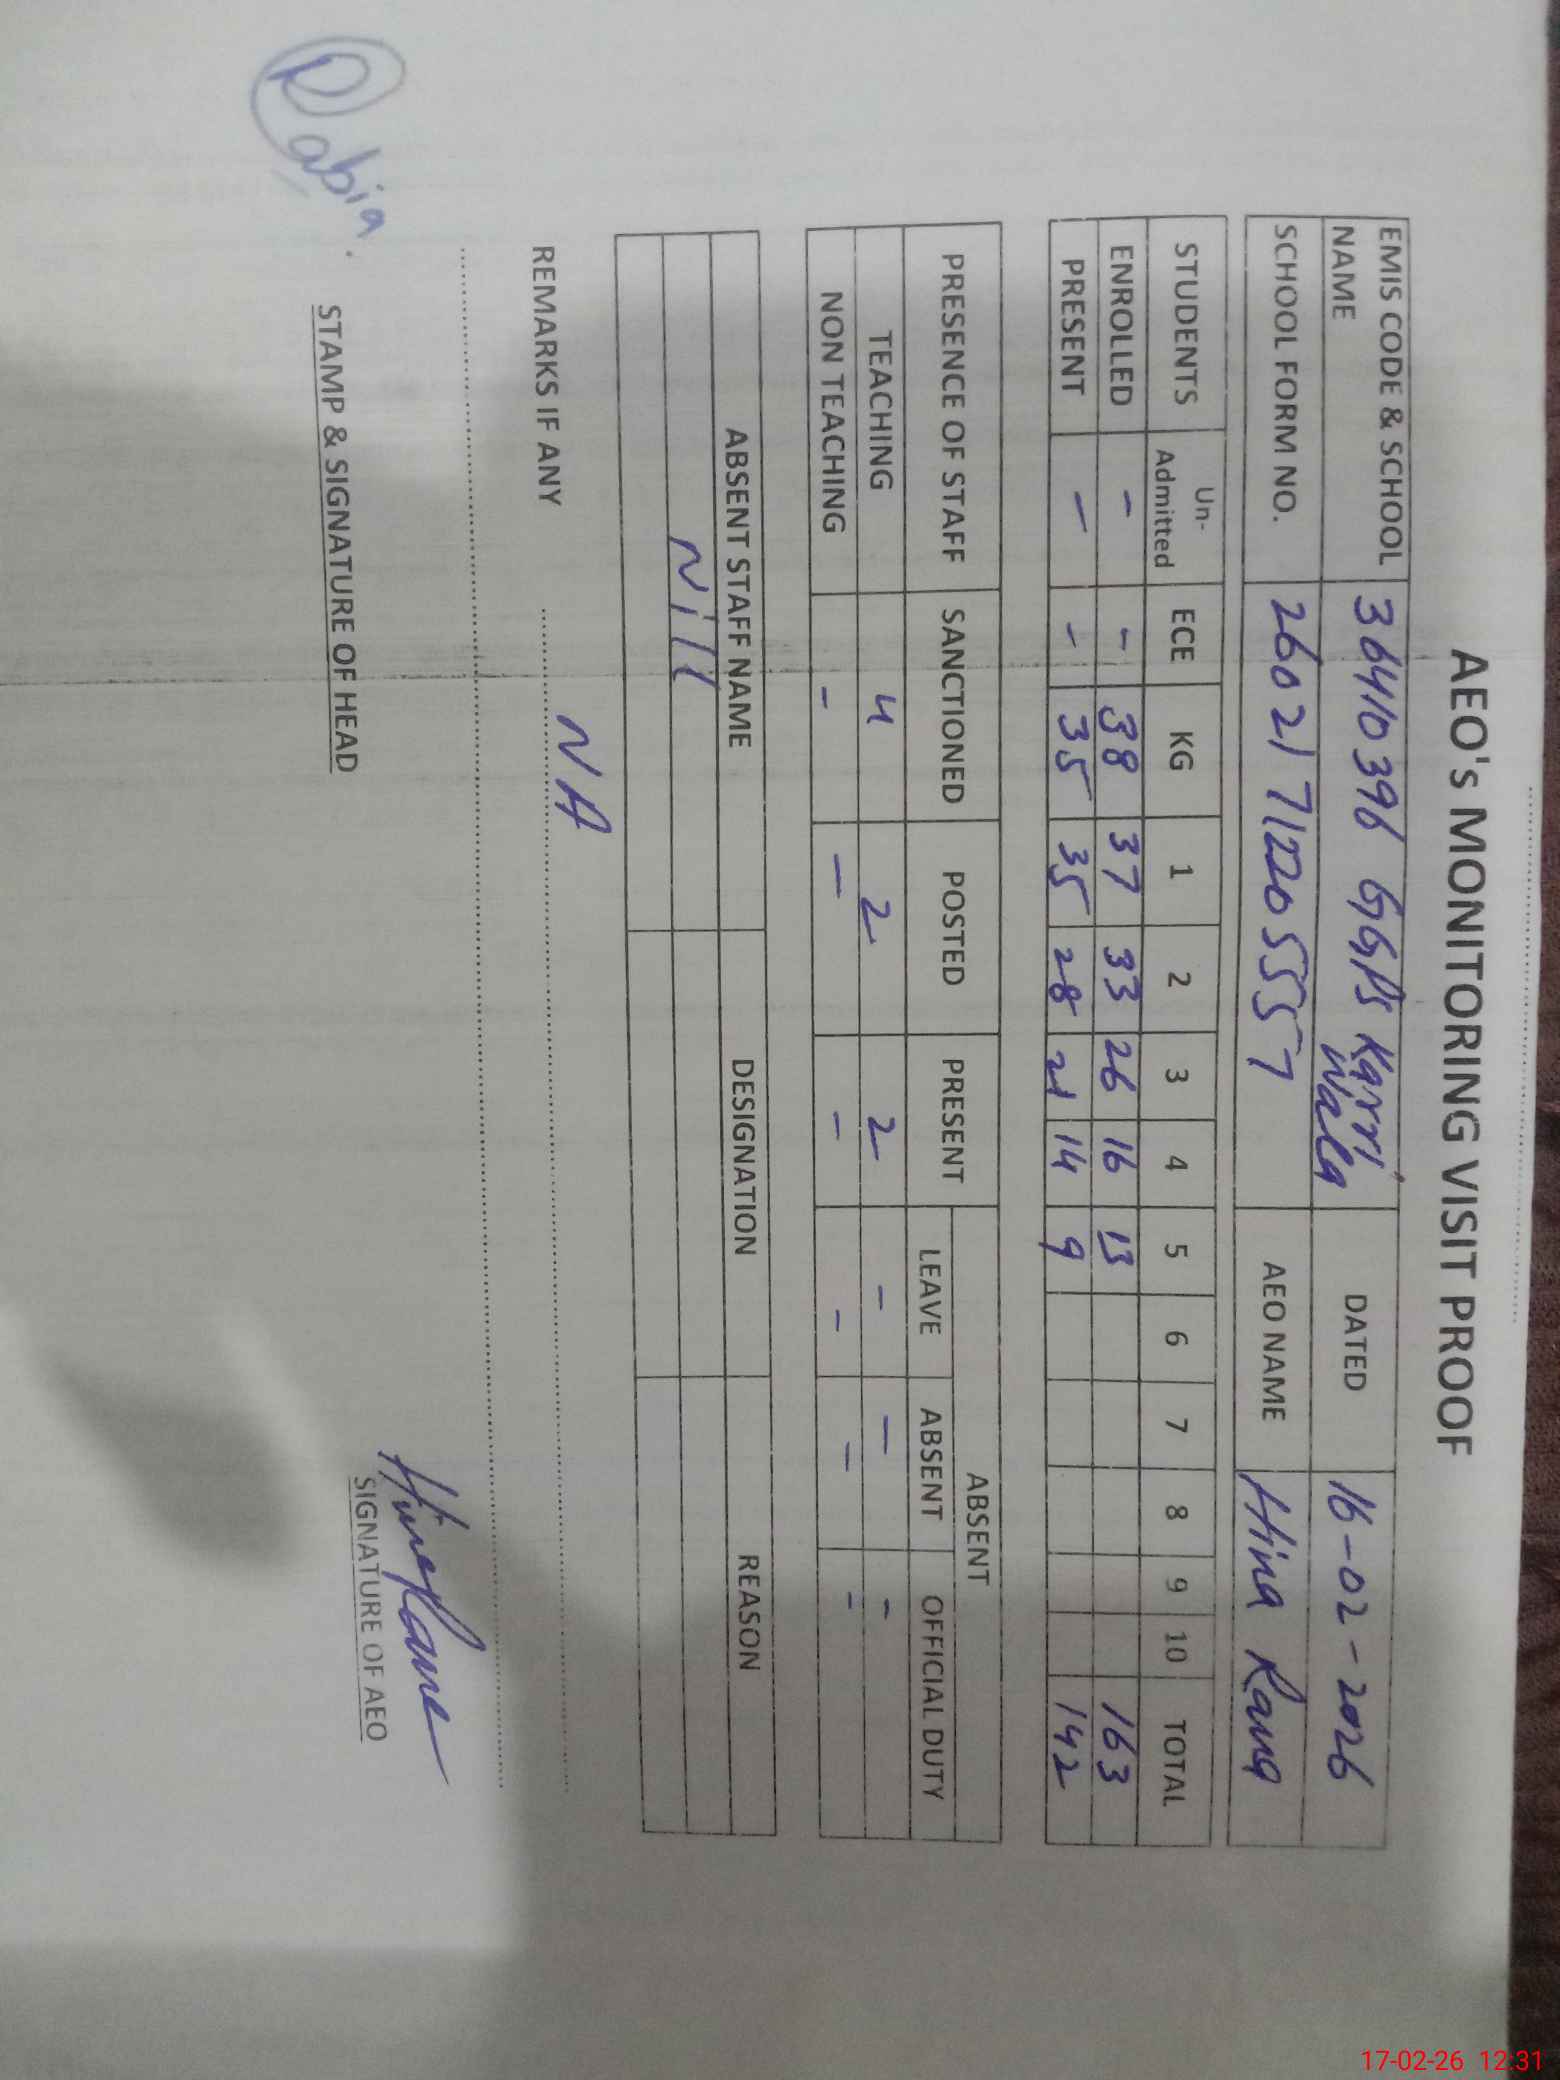 AEO's MONITORING VISIT PROOF
EMIS CODE & SCHOOL NAME 36410396 GGPS Karri Wala DATED 16-02-2026
SCHOOL FORM NO. 260217122055557 AEO NAME Hina Rana
STUDENTS Un-Admitted ECE KG 1 2 3 4 5 6 7 8 9 10 TOTAL
ENROLLED - - 38 37 33 26 16 13 163
PRESENT - - 35 35 28 21 14 9 142
PRESENCE OF STAFF SANCTIONED POSTED PRESENT ABSENT
LEAVE ABSENT OFFICIAL DUTY
TEACHING 4 2 2 - - -
NON TEACHING - - - - - -
ABSENT STAFF NAME DESIGNATION REASON
Nill
REMARKS IF ANY NA
Rabia.
STAMP & SIGNATURE OF HEAD
Hina Rana
SIGNATURE OF AEO
17-02-26 12:31